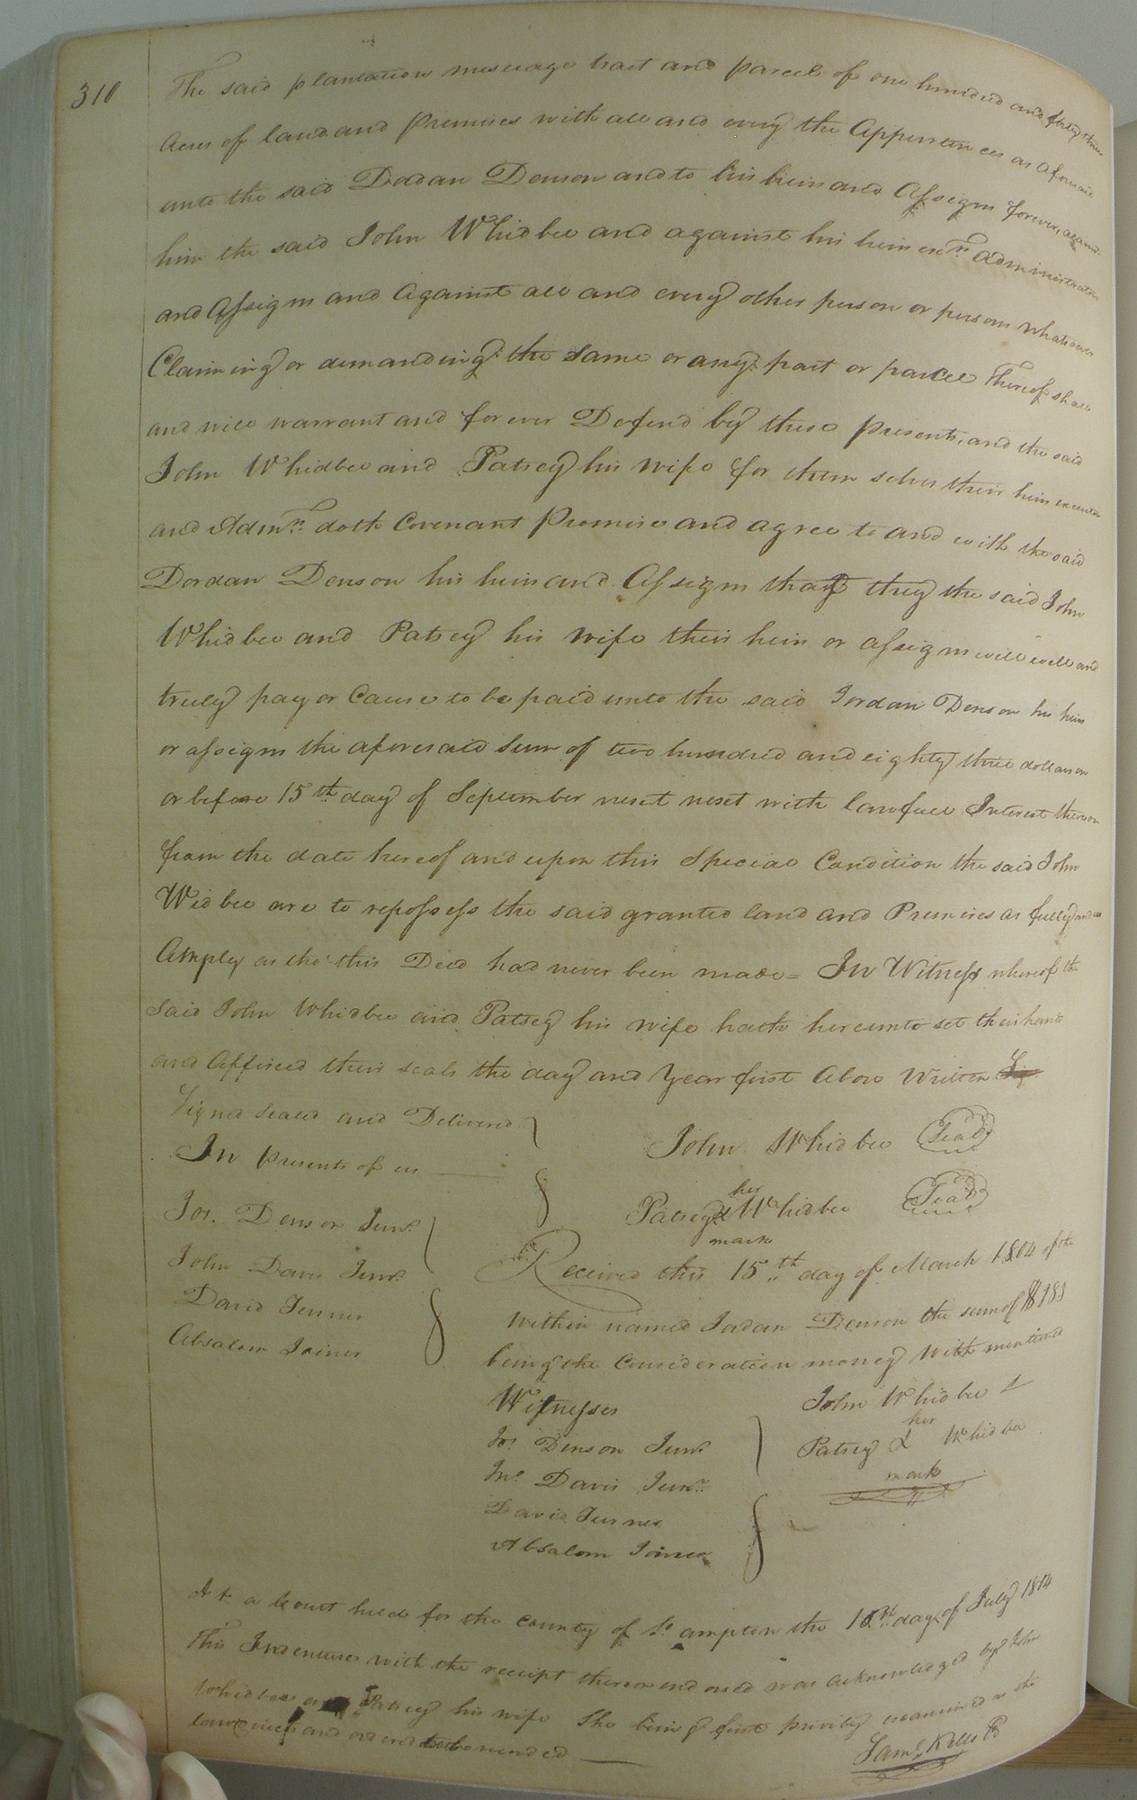 310
The said plantation messuage tract and parcel of one hundred and forty three
Acres of land and Premises with all and every the Appurtenances as aforesaid
unto the said Dordan Denson and to his heirs and Assigns forever, against
him the said John Whidbee and against his heirs exrs administrators
and Assigns and Against all and every other person or persons whatsoever
Claiming or demanding the same or any part or parcel Thereof shall
and will warrant and forever Defend by these presents, and the said
John Whidbee and Patsey his wife for them selves their heirs executors
and Admrs. doth Covenant Promise and agree to and with the said
Dordan Denson his heirs and Assigns that they the said John
Whidbee and Patsey his wife their heirs or assigns will well and
truly pay or Cause to be paid unto the said Jordan Denson his heirs
or assigns the aforesaid sum of two hundred and eighty three dollars on
or before 15th day of September next next with lawfull Interest thereon
from the date hereof and upon this Special Condition the said John
Widbee are to repossess the said granted land and Premises as fully and as
Amply as tho' this Deed had never been made = In Witness whereof the
said John Whidbee and Patsey his wife hath hereunto set their hands
and Affixed their seals the day and Year first Above Written
Signd Seald and Deliverd
In presents of us
John Whidbee (Seal)
her
Patsey Whidbee (Seal)
mark
Jos. Denson Junr.
John Davis Junr.
David Turner
Absalom Joiner
Received this 15th day of March 1814 of the
within named Jordan Denson the sum of $
being the Consideration money with mentioned
Witnesses
John Whidbee
her
Patsey Whidbee
mark
Jos Denson Junr
Jno Davis Junr.
David Turner
Absalom Joiner
At a Court held for the County of So.ampton the day of July 1814
This Indenture with the receipt thereon endorsed was acknowledged by John
Whidbee and Patsey his wife She being first privily examined as the
law directs and ordered to be recorded
Saml. Kello